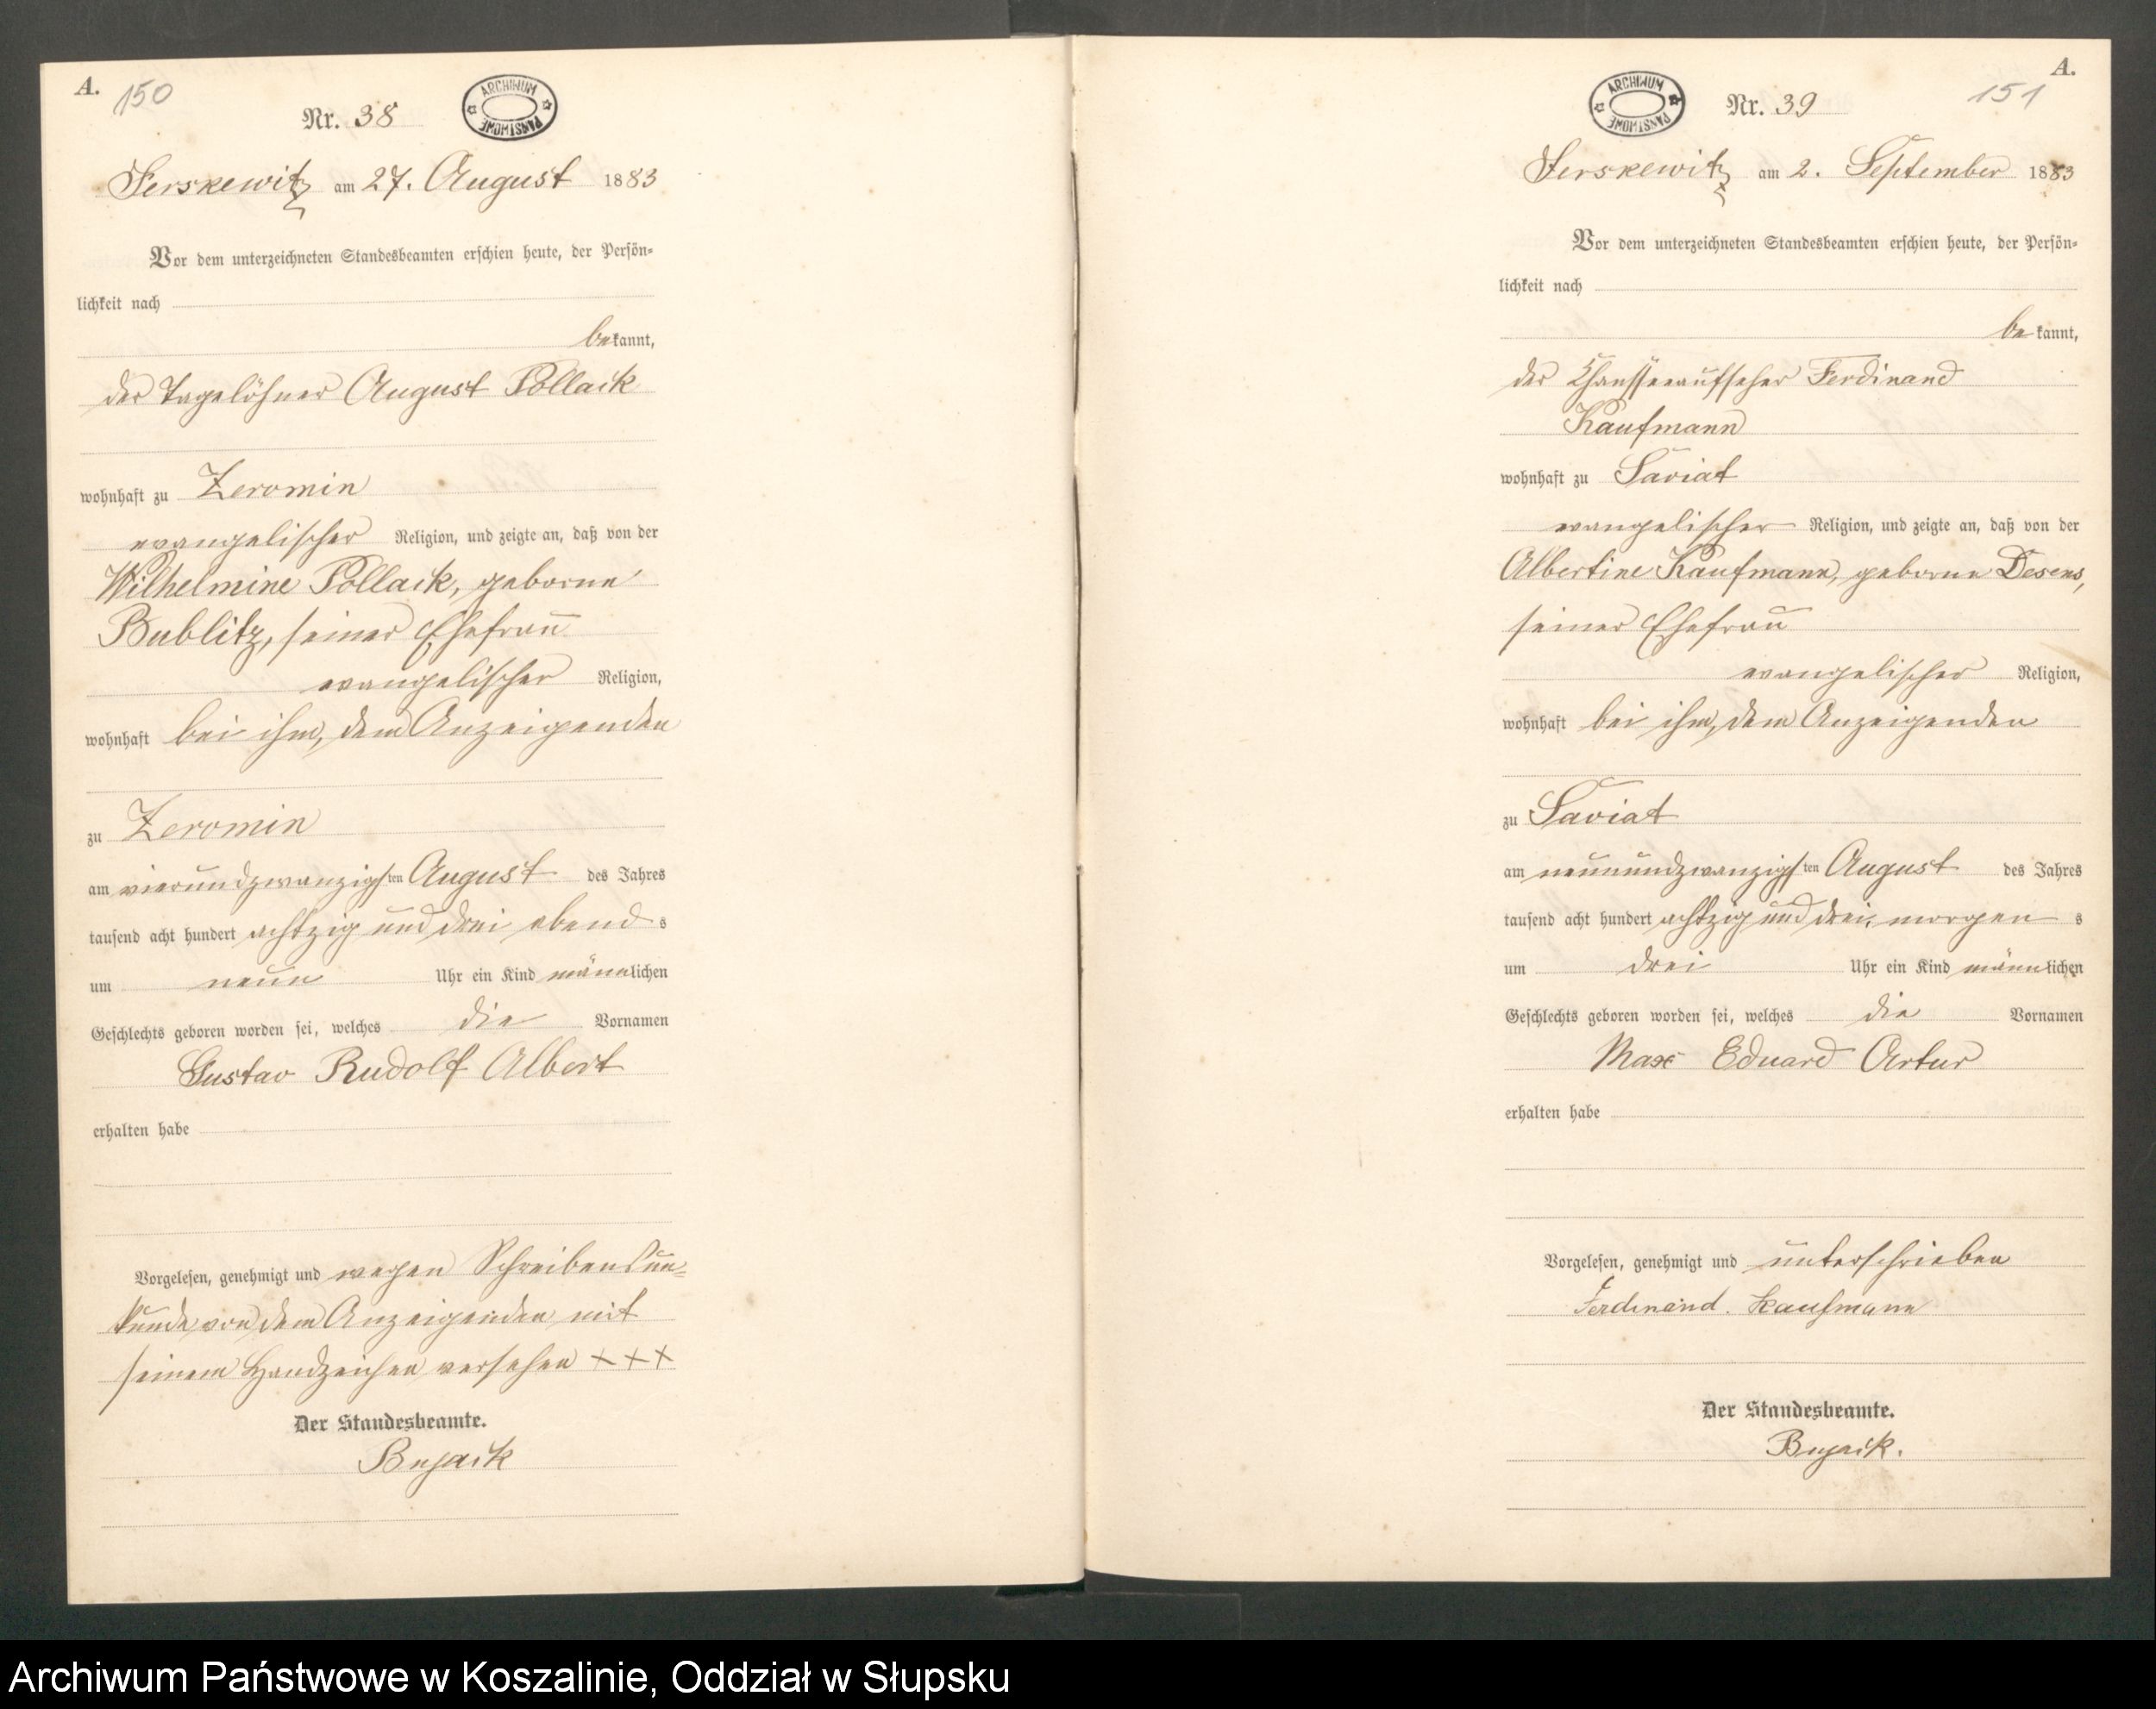 A. 150
ARCHIWUM PAŃSTWOWE
Nr. 38
Serskewitz am 27. August 1883
Vor dem unterzeichneten Standesbeamten erschien heute, der Persön=
lichkeit nach
bekannt,
der Tagelöhner August Pollack
wohnhaft zu Zeromin
evangelischer Religion, und zeigte an, daß von der
Wilhelmine Pollack, geborne
Bublitz, seiner Ehefrau
evangelischer Religion,
wohnhaft bei ihm, dem Anzeigenden
zu Zeromin
am vierundzwanzigsten August des Jahres
tausend acht hundert achtzig und drei abends
um neun Uhr ein Kind männlichen
Geschlechts geboren worden sei, welches die Vornamen
Gustav Rudolf Albert
erhalten habe
Vorgelesen, genehmigt und wegen Schreibensun=
kunde von dem Anzeigenden mit
seinem Handzeichen versehen +++
Der Standesbeamte.
Bujack
A.
151
ARCHIWUM PAŃSTWOWE
Nr. 39
Serskewitz am 2. September 1883
Vor dem unterzeichneten Standesbeamten erschien heute, der Persön=
lichkeit nach
bekannt,
der Chausseeaufseher Ferdinand
Kaufmann
wohnhaft zu Saviat
evangelischer Religion, und zeigte an, daß von der
Albertine Kaufmann, geborne Desens,
seiner Ehefrau
evangelischer Religion,
wohnhaft bei ihm, dem Anzeigenden
zu Saviat
am neunundzwanzigsten August des Jahres
tausend acht hundert achtzig und drei, morgens
um drei Uhr ein Kind männlichen
Geschlechts geboren worden sei, welches die Vornamen
Max Eduard Artur
erhalten habe
Vorgelesen, genehmigt und unterschrieben
Ferdinand. Kaufmann
Der Standesbeamte.
Bujack.
Archiwum Państwowe w Koszalinie, Oddział w Słupsku